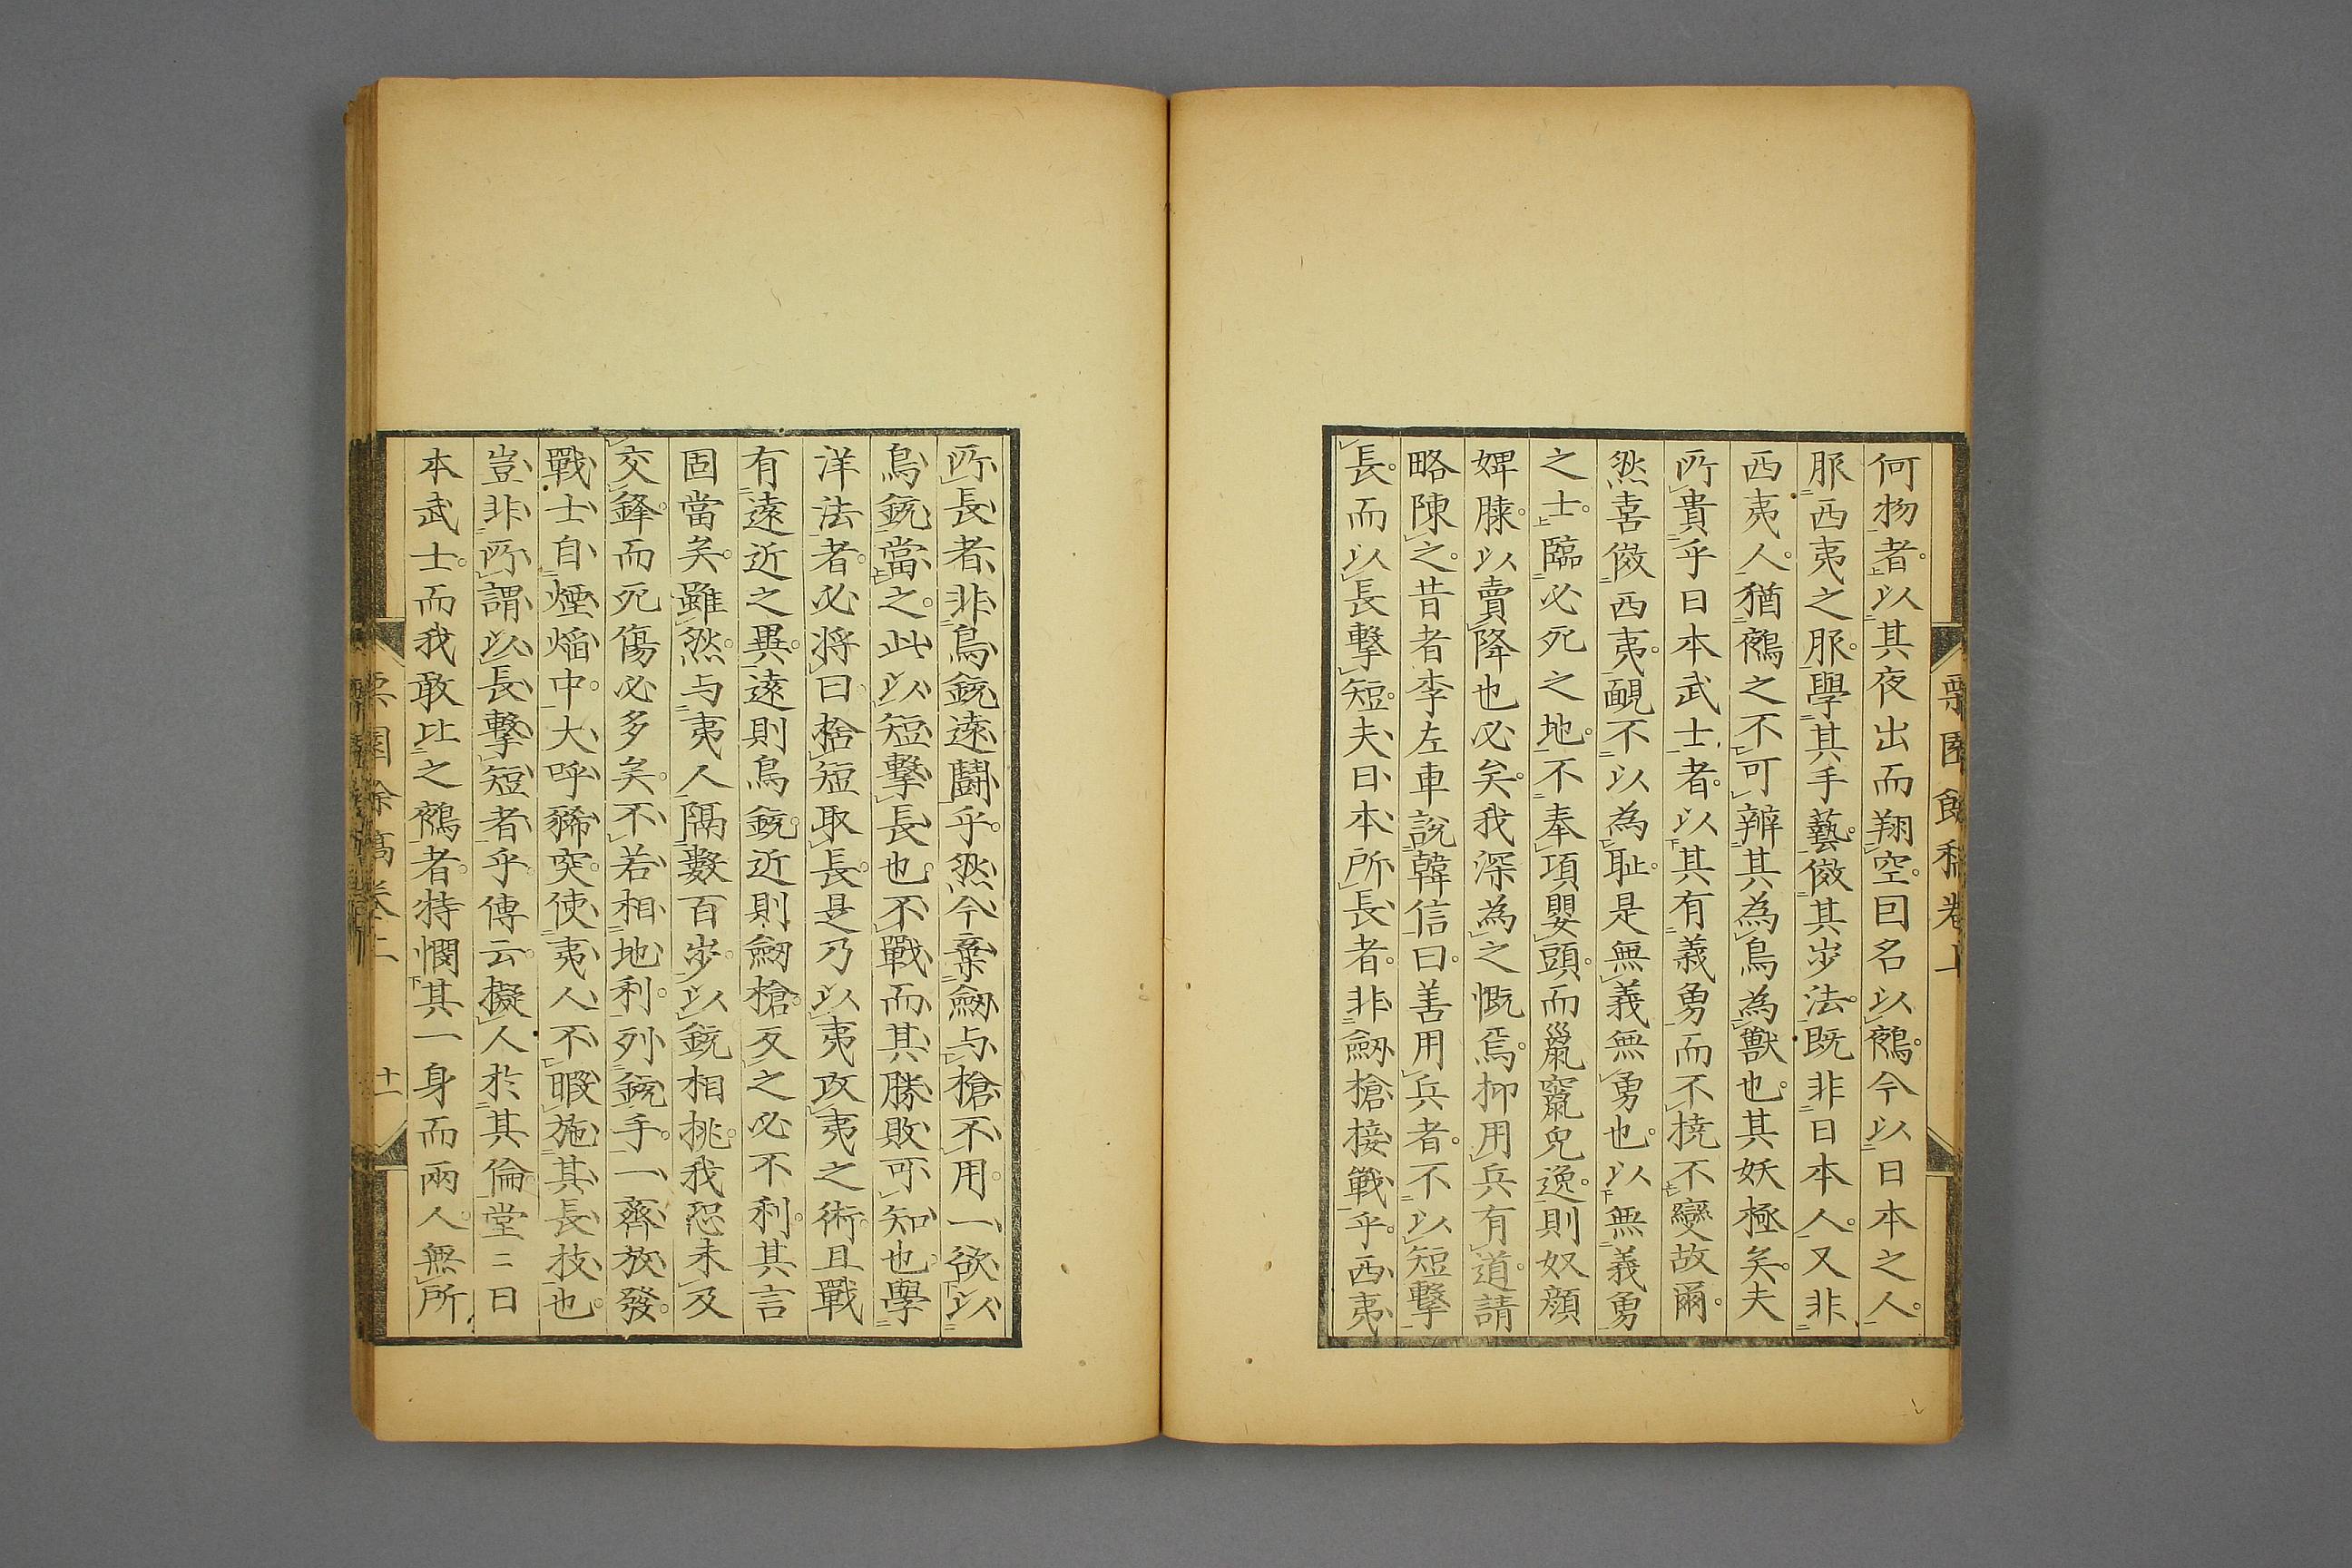 何物者以其夜出而翔空囙名以鵺今以日本之人
服西夷之服學其手藝傚其步法既非日本人又非
西夷人猶鵺之不可辨其為鳥為獸也其妖極矣夫
所貴乎日本武士者以其有義勇而不撓不變故爾
然喜傚西夷靦不以為耻是無義無勇也以無義勇
之士臨必死之地不奉項嬰頭而鼠竄兔逸則奴顔
婢膝以賣降也必矣我深為之慨焉抑用兵有道請
略陳之昔者李左車説韓信曰善用兵者不以短擊
長而以長擊短夫日本所長者非劔槍接戰乎西夷
所長者非鳥銃遠鬪乎然今棄劔与槍不用一欲以
鳥銃當之此以短擊長也不戰而其勝敗可知也學
洋法者必将曰捨短取長是乃以夷攻夷之術且戰
有遠近之異遠則鳥銃近則劔槍反之必不利其言
固當矣雖然与夷人隔數百步以銃相挑我恐未及
交鋒而死傷必多矣不若相地利列銃手一齊放發
戰士自煙焔中大呼豨突使夷人不暇施其長技也
豈非所謂以長擊短者乎傳云擬人於其倫堂〻日
本武士而我敢比之鵺者特憫其一身而兩人無所
栗園餘稿卷二
十一